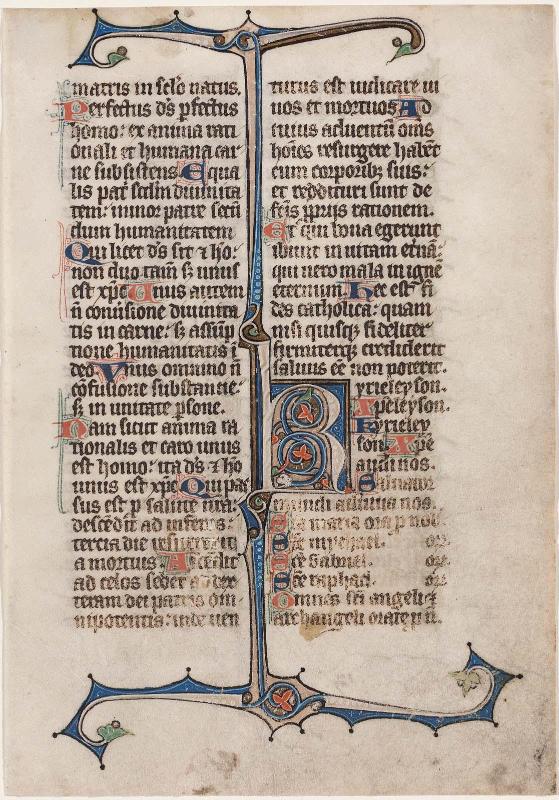 matris in sc̄lo natus.
Perfectus dˢ pfectus
homo: ex anima rati
onali et humana car
ne subsistens. Equa
lis patˀ scdm diuinita
tem: minor patre secū
dum humanitatem
Qui licet dˢ sit ⁊ ho:
non duo tam̄ sꝫ unus
est xp̄c Unus autem
ñ conuersione diuinita
tis in carne: sꝫ assūp
tione humanitatis ī
deo Vnus omnino ñ
cōfusione substantie:
sꝫ in unitate ꝑsone.
Nam sicut anima ra
tionalis et caro unus
est homo: ita dˢ ⁊ ho
unus est xp̄c Qui pas
sus est ꝓ salute nr̄a:
descēdit ad inferos:
tercia die resurrexit
a mortuis Ascendit
ad celos sedet ad dex
teram dei patris om
nipotentis: inde uen
turus est iudicare ui
uos et mortuos Ad
cuius aduentū om̄s
hoīes resurgere habēt
cum corporibꝫ suis:
et reddituri sunt de
fc̄is ꝓprijs rationem.
Et qui bona egerunt
ibunt in uitam et̄nā:
qui uero mala in ignē
eternum. Hec est fi
des catholica: quam
nisi quisqꝫ fideliter
firmiterqꝫ crediderit
saluus eē non poterit.
Kyrieleyson.
Xp̄eleyson.
Kyrieley
son. Xp̄e
audi nos.
Saluator
mundi adiuua nos.
Sc̄a maria ora ꝓ nob
Sc̄e mychael. or̄.
Sc̄e Gabriel. or̄.
Sc̄e raphael. or̄.
Omnes sc̄i angeli ⁊
archangeli orate ꝓ ñ.